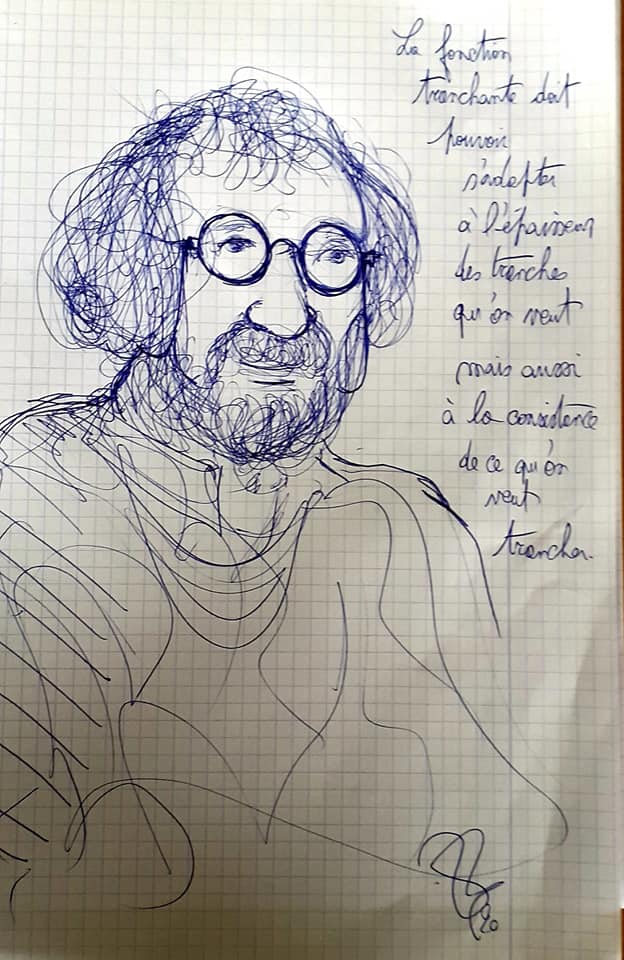 La fonction
tranchante doit
pouvoir
s'adapter
à l'épaisseur
des tranches
qu'on veut
mais aussi
à la consistance
de ce qu'on
veut
trancher.
20